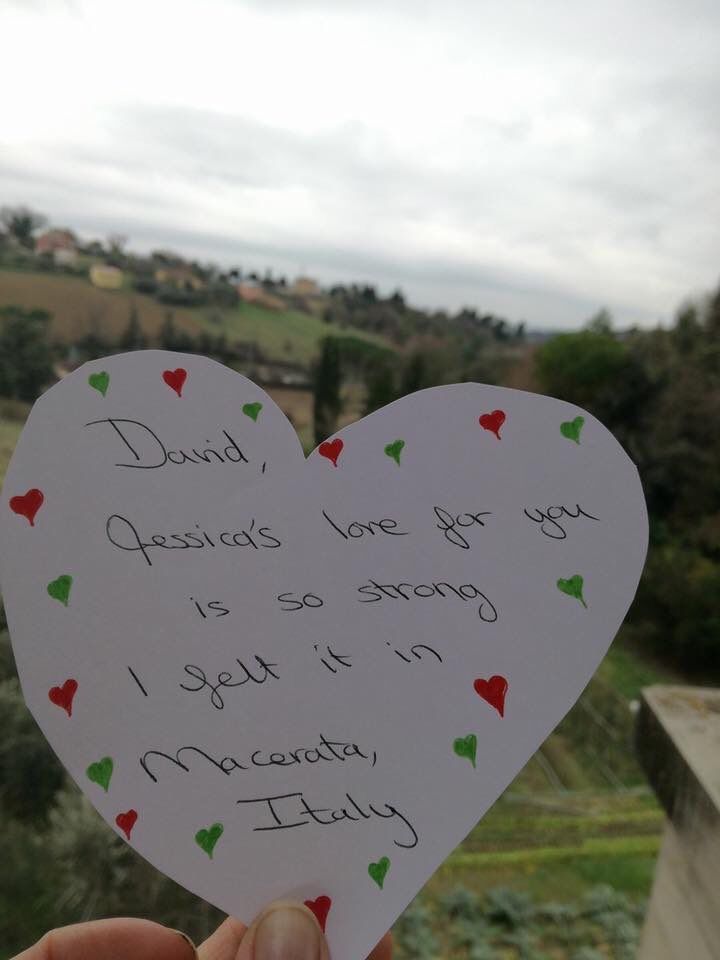 David,
Jessica's love for you
is so strong
I felt it in
Macerata,
Italy